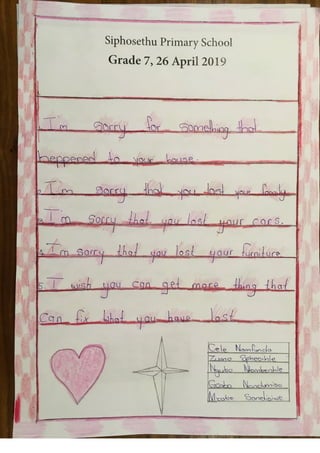 Siphosethu Primary School
Grade 7, 26 April 2019
1. I'm sorry for something that
heppened to your house.
2. I'm sorry that you lost your family
3. I'm sorry that you lost your cars.
4. I'm sorry that you lost your furniture
5. I wish you can get more thing that
can fix what you have lost
Cele Nomfundo
Zuma Sphesihle
Ngubo Ntombenhle
Gcaba Nondumiso
Mxabe